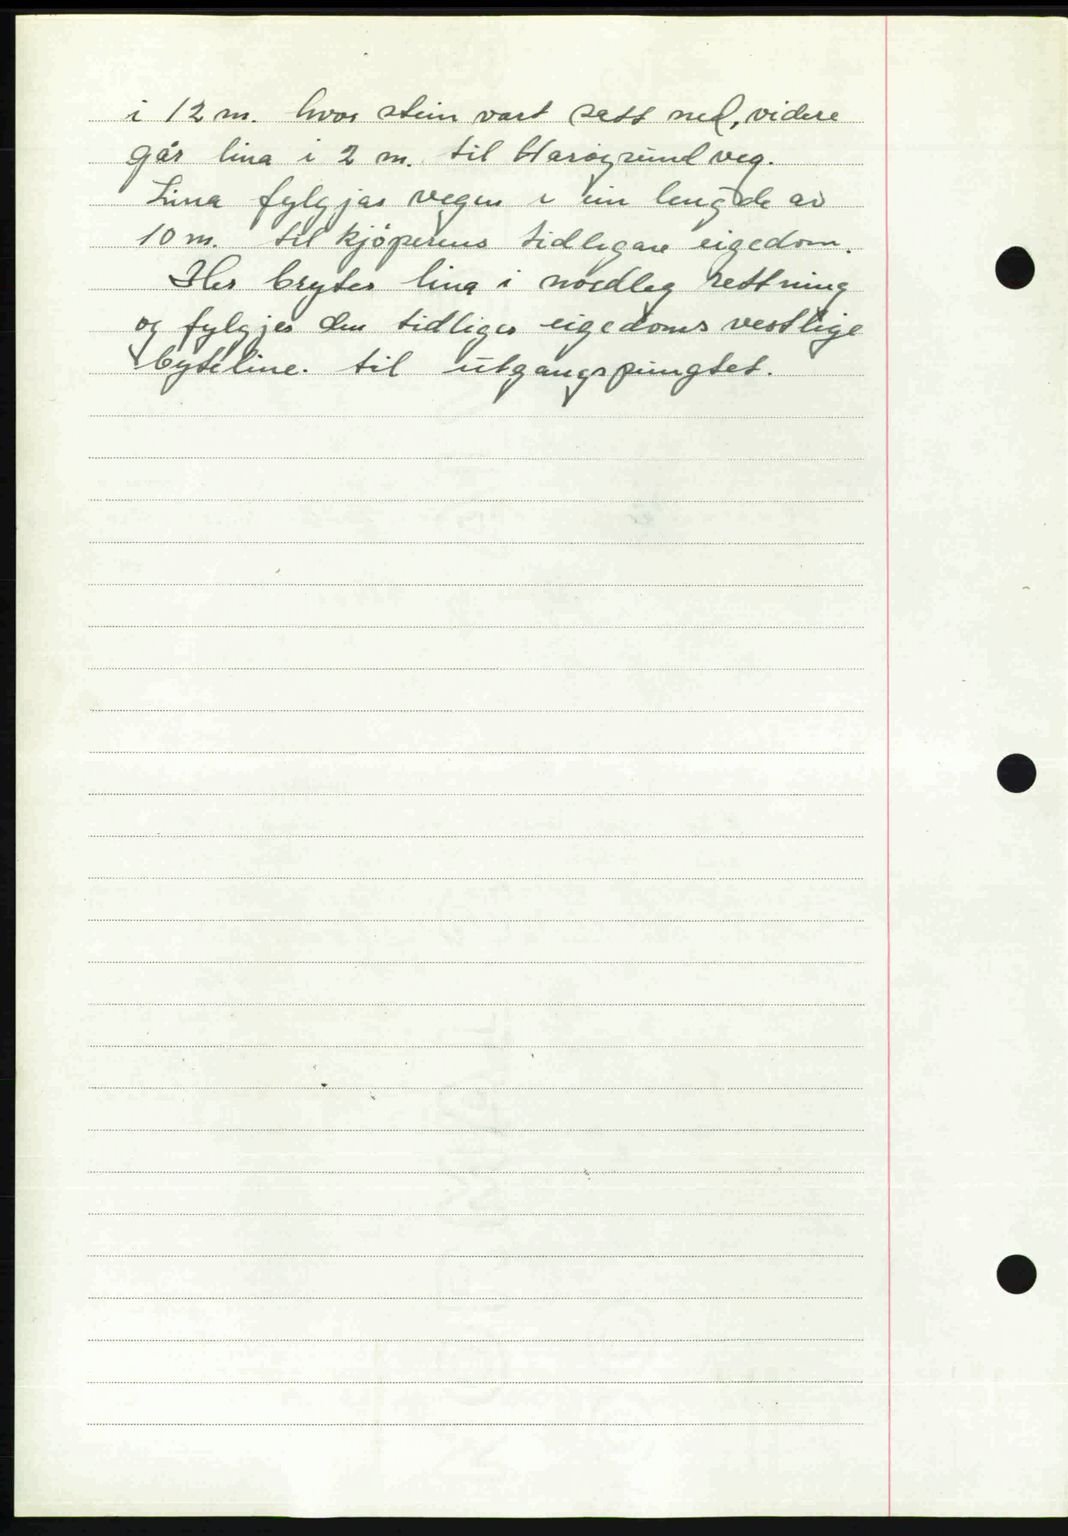 i 12 m. hvor stein vart sett ned, videre
går lina i 2 m. til Harøysund veg.
Lina fylgjar vegen i ein lengde av
10 m. til kjöperens tidligare eigedom.
Her bryter lina i nordleg rettning
og fylgjer den tidliger eigedoms vestlige
byteline. til utgangspungtet.